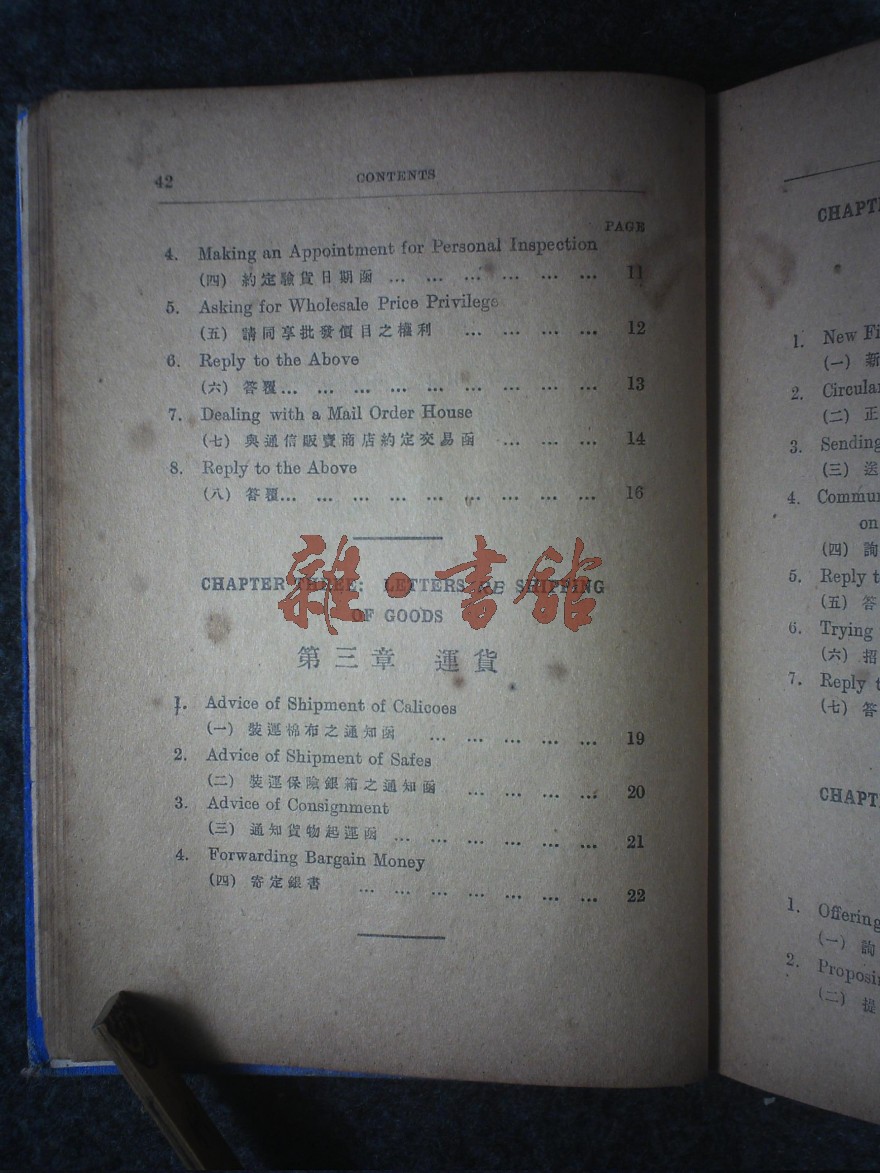 42 CONTENTS
PAGE
4. Making an Appointment for Personal Inspection
(四) 約定驗貨日期函 ... ... ... ... ... ... 11
5. Asking for Wholesale Price Privilege
(五) 請同享批發價目之權利 ... ... ... ... 12
6. Reply to the Above
(六) 答覆... ... ... ... ... ... ... ... ... 13
7. Dealing with a Mail Order House
(七) 與通信販賣商店約定交易函 ... ... ... 14
8. Reply to the Above
(八) 答覆... ... ... ... ... ... ... ... ... 16
雜·書館
CHAPTER THREE: LETTERS RE SHIPPING
OF GOODS
第三章 運貨
1. Advice of Shipment of Calicoes
(一) 裝運棉布之通知函 ... ... ... ... ... 19
2. Advice of Shipment of Safes
(二) 裝運保險銀箱之通知函 ... ... ... ... 20
3. Advice of Consignment
(三) 通知貨物起運函 ... ... ... ... ... ... 21
4. Forwarding Bargain Money
(四) 寄定銀書 ... ... ... ... ... ... ... 22
CHAPT
1. New Fi
(一) 新
2. Circular
(二) 正
3. Sending
(三) 送
4. Commun
on
(四) 詢
5. Reply t
(五) 答
6. Trying
(六) 招
7. Reply t
(七) 答
CHAPT
1. Offering
(一) 詢
2. Proposin
(二) 提